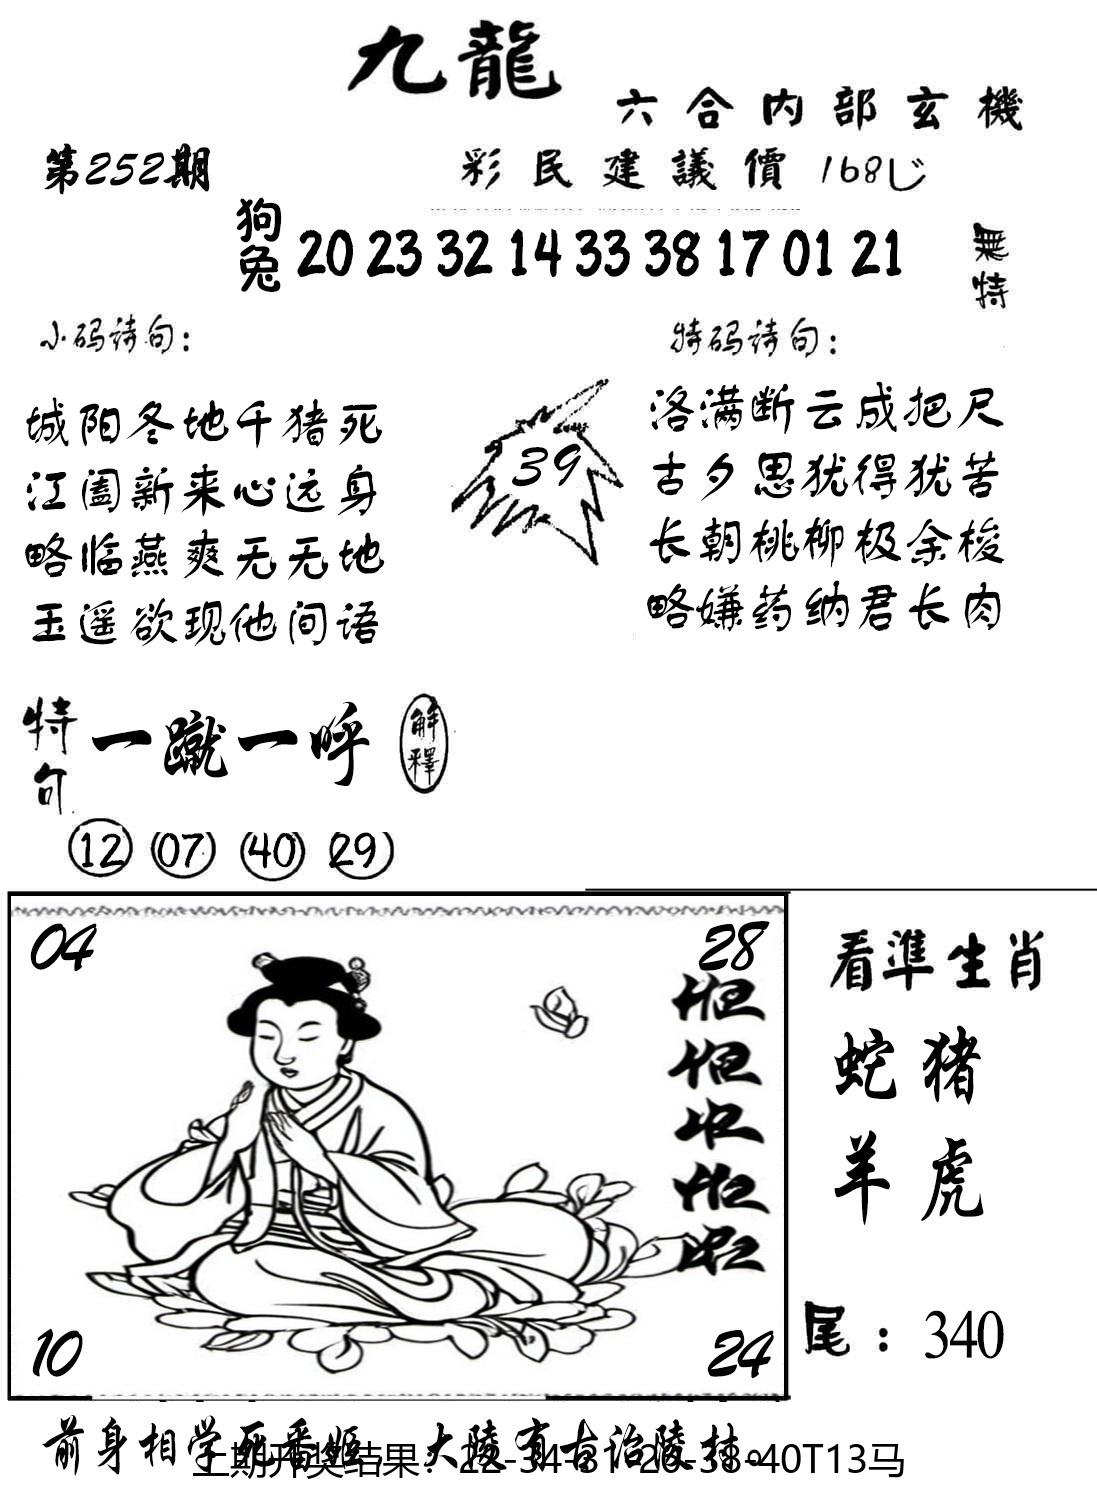 九龍
六合内部玄機
第252期
彩民建議價168
狗兔
20 23 32 14 33 38 17 01 21
無特
小码诗句：
特码诗句：
城阳冬地千猪死
江阖新来心远身
略临燕爽无无地
玉遥欲现他间语
39
洛满断云成把尺
古夕思犹得犹苦
长朝桃柳极余梭
略嫌药纳君长肉
特句
一蹴一呼
解釋
12 07 40 29
04
28
10
24
看準生肖
蛇猪
羊虎
尾：340
前身相学死番姬 大陵有古治陵村。
上期开奖结果：22-34-31-26-38-40T13马